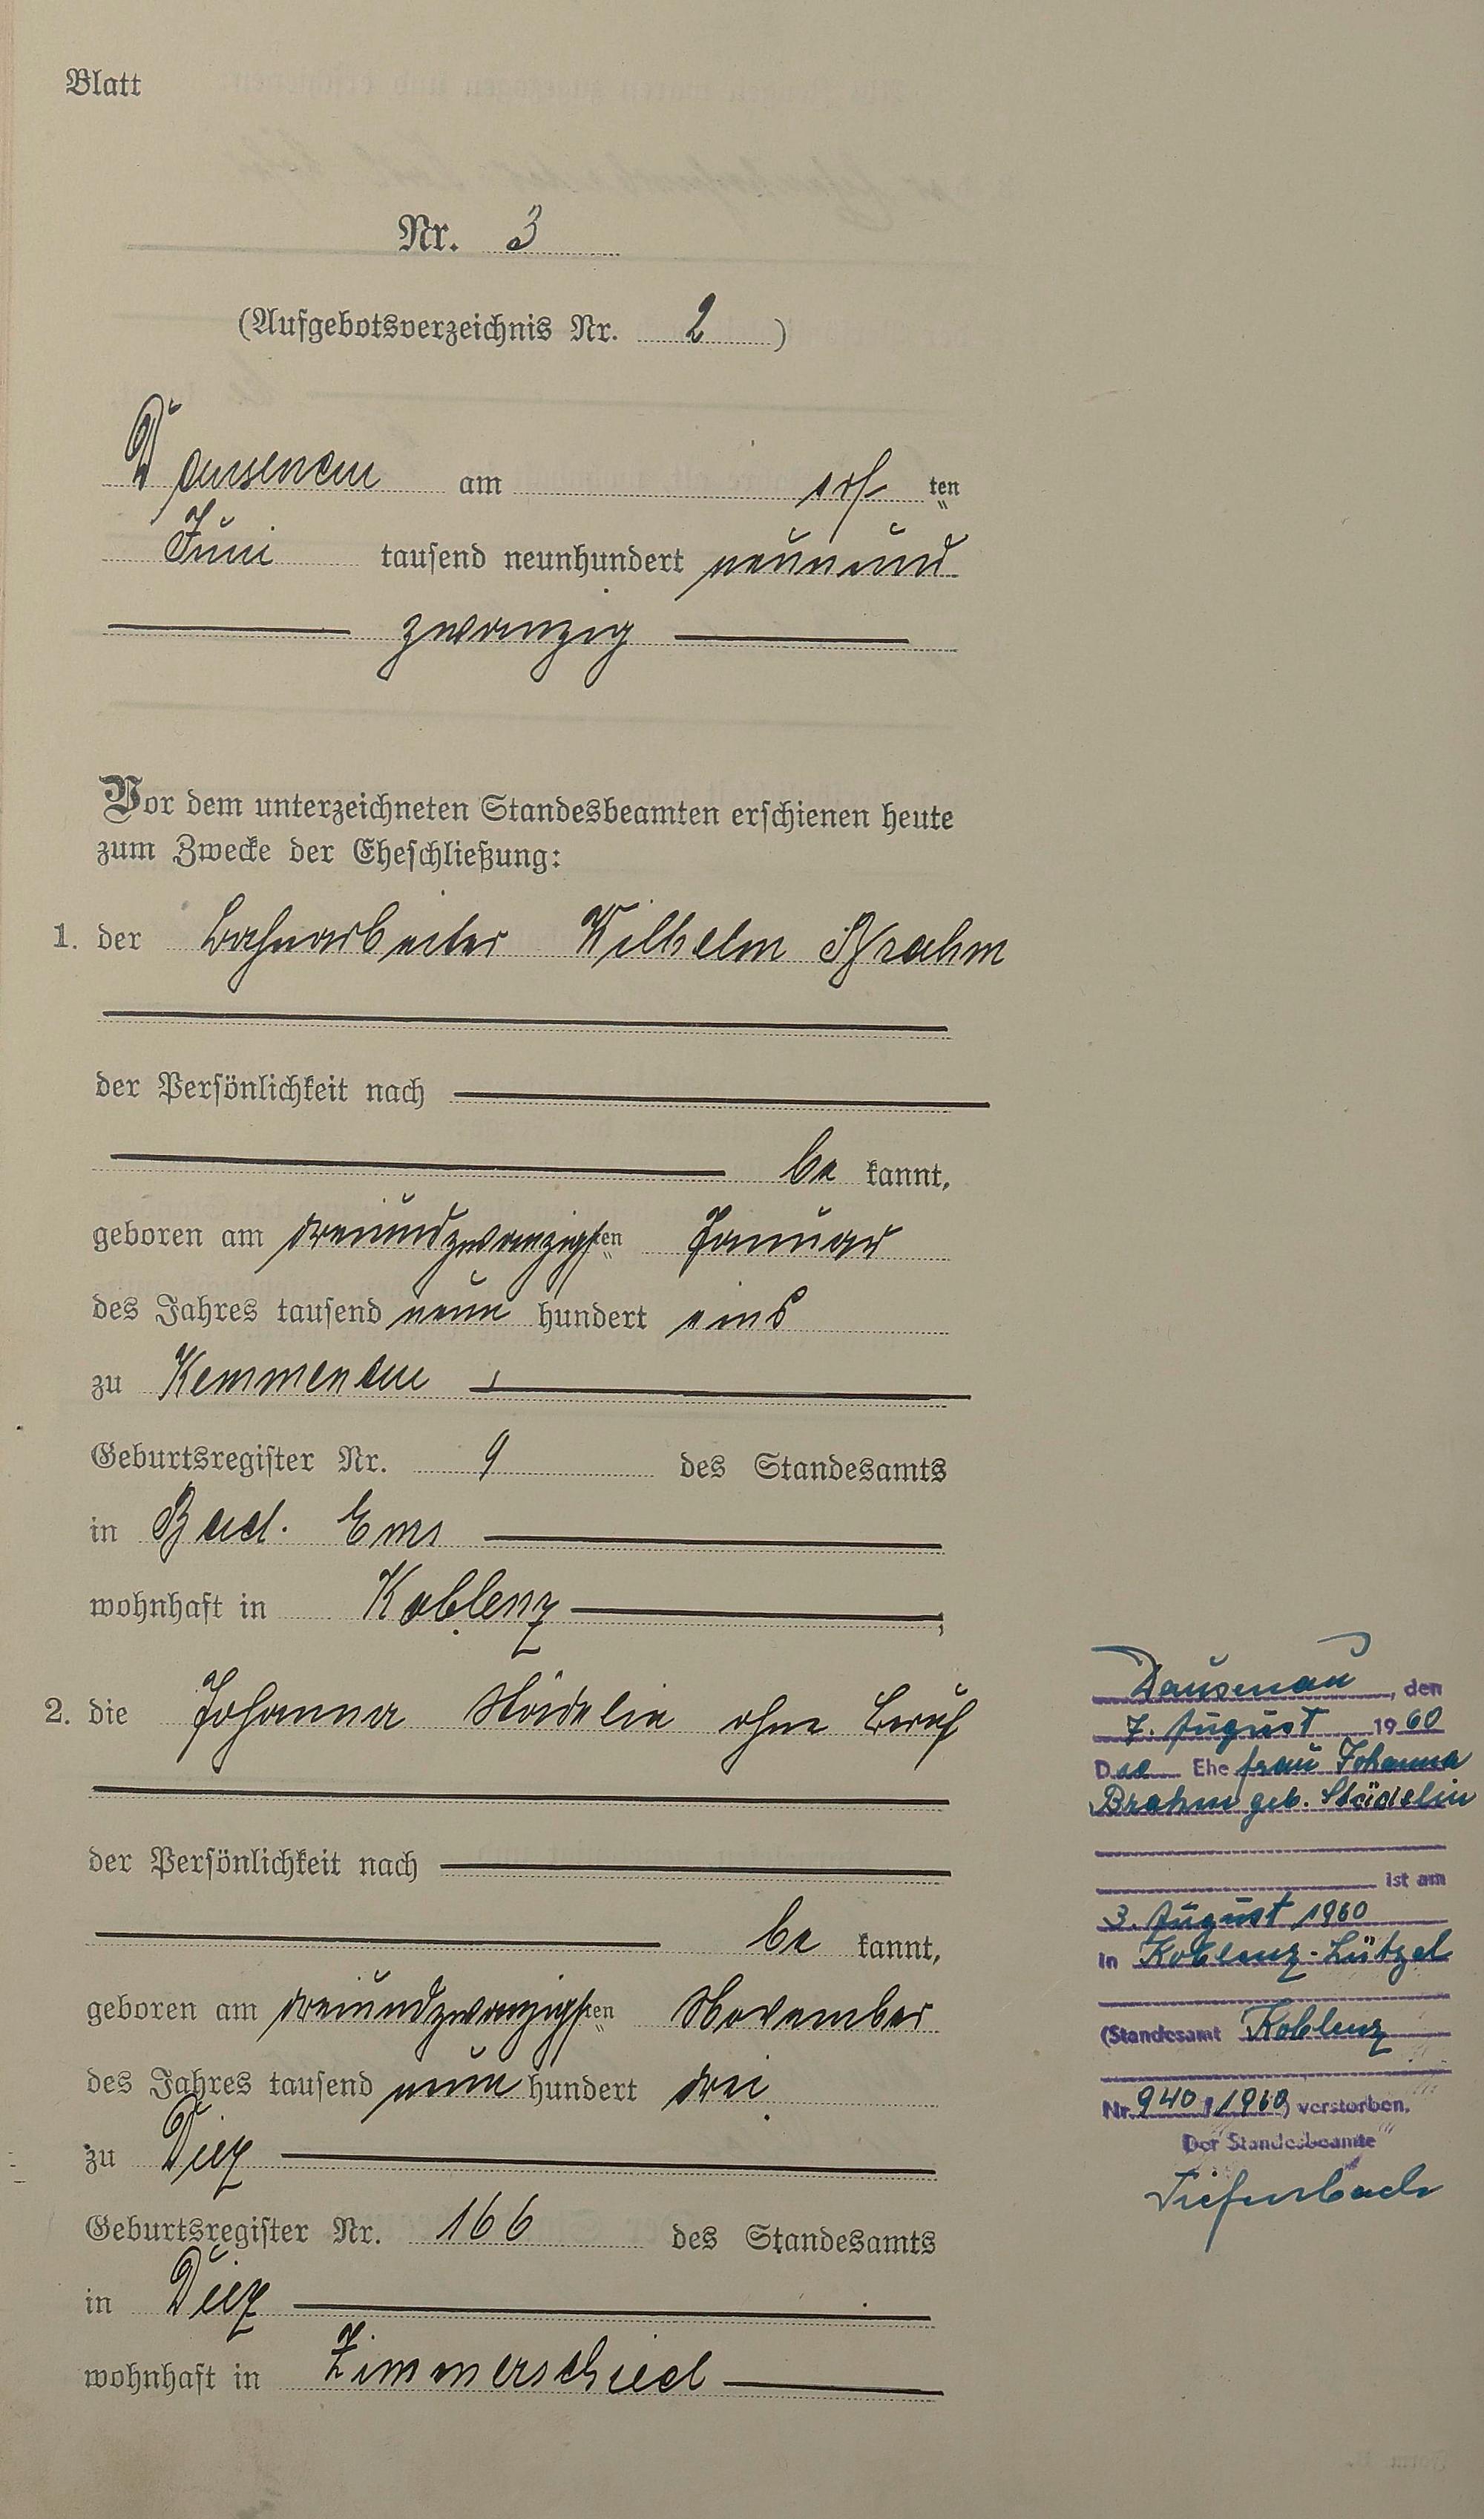 Blatt
Nr. 3
(Aufgebotsverzeichnis Nr. 2)
Dausenau am ten
Juni tausend neunhundert neunund
zwanzig
Vor dem unterzeichneten Standesbeamten erschienen heute
zum Zwecke der Eheschließung:
1. der Bahnarbeiter Wilhelm Brahm
der Persönlichkeit nach
be kannt,
geboren am dreiundzwanzigsten Januar
des Jahres tausend neun hundert eins
zu Kemmenau
Geburtsregister Nr. 9 des Standesamts
in Bad. Ems
wohnhaft in Koblenz ;
2. die Johanna Städelin ohne Beruf
der Persönlichkeit nach
be kannt,
geboren am dreiundzwanzigsten November
des Jahres tausend neun hundert drei
zu Diez
Geburtsregister Nr. 166 des Standesamts
in Diez
wohnhaft in Zimmerschied
Dausenau, den
7. August 1960
Die Ehefrau Johanna
Brahm geb. Städelin
ist am
3. August 1960
in Koblenz-Lützel
(Standesamt Koblenz
Nr. 940/1960) verstorben.
Der Standesbeamte
Tiefenbach